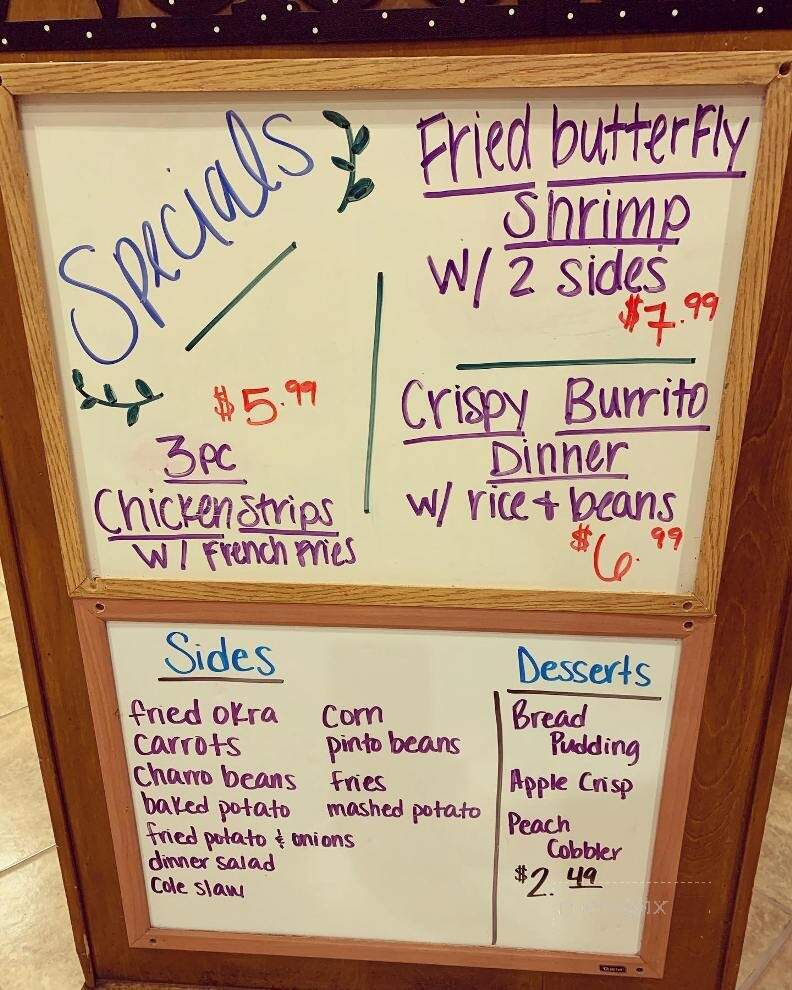 Specials
$5.99
3pc
Chicken Strips
w/ French Fries
Fried butterfly
Shrimp
w/ 2 sides
$7.99
Crispy Burrito
Dinner
w/ rice + beans
$6.99
Sides
fried okra
carrots
charro beans
baked potato
fried potato & onions
dinner salad
cole slaw
corn
pinto beans
fries
mashed potato
Desserts
Bread
Pudding
Apple Crisp
Peach
Cobbler
$2.49